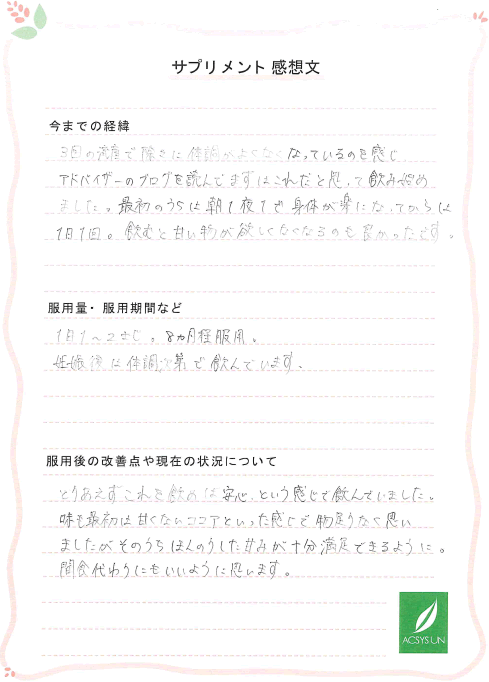 サプリメント 感想文
今までの経緯
3回の流産で除々に体調がよくなくなっているのを感じ
アドバイザーのブログを読んでまずはこれだと思って飲み始め
ました。最初のうちは朝1夜1で身体が楽になってからは
1日1回。飲むと甘い物が欲しくなくなるのも良かったです。
服用量・服用期間など
1日1～2さじ。8ヵ月程服用。
妊娠後は体調次第で飲んでいます。
服用後の改善点や現在の状況について
とりあえずこれを飲めば安心、という感じで飲んでいました。
味も最初は甘くないココアといった感じで物足りなく思い
ましたがそのうちほんのりした甘みが十分満足できるように。
間食代わりにもいいように思います。
ACSYSUN